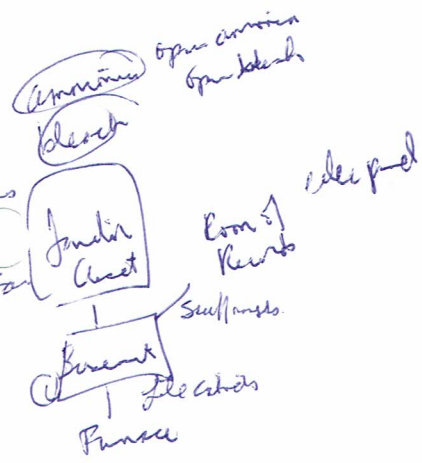 ammonia
open ammonia
open bleach
bleach
Janitor
Closet
Room of
Records
Scuff marks
Basement
file cabinets
Furnace